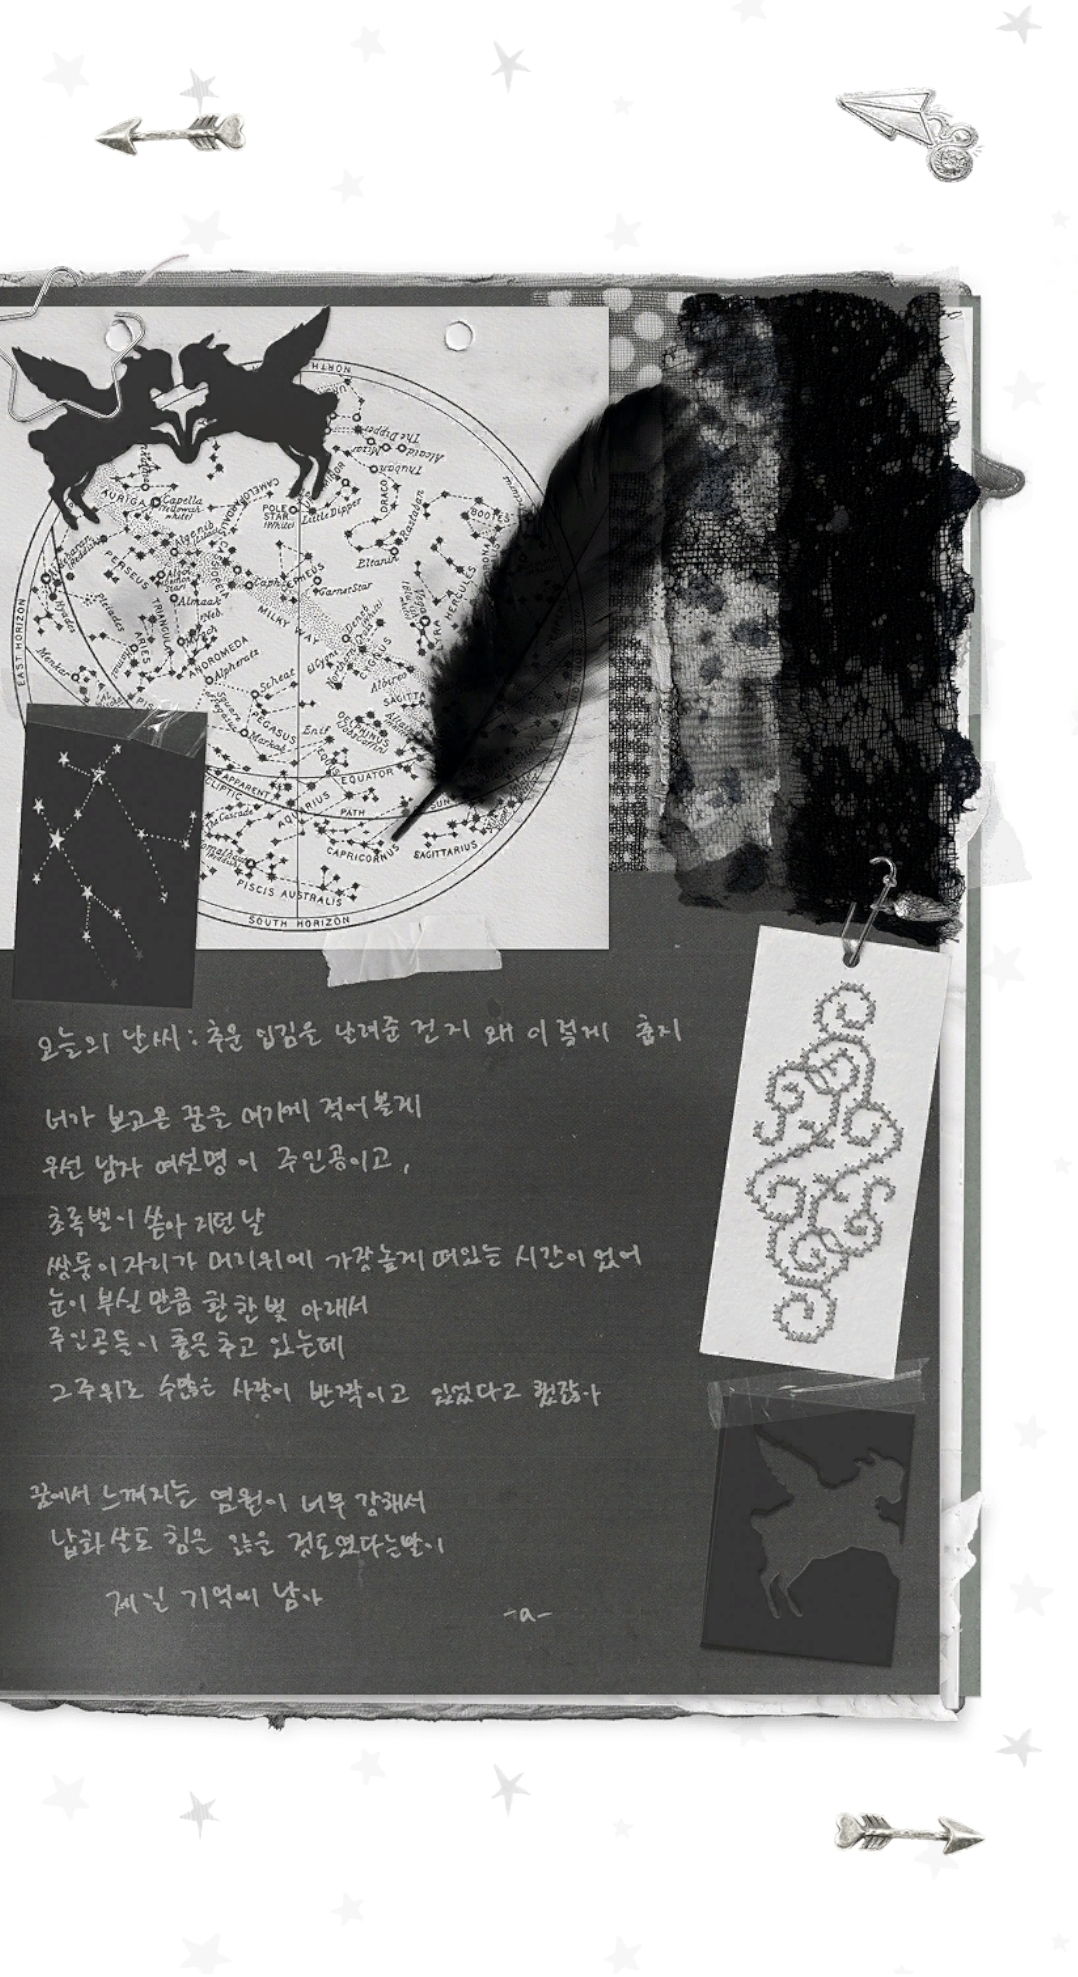 NORTH
The Dipper
Mizar
Alcaid
Thuban
DRACO
AURIGA
Capella
(Yellowish white)
POLE STAR
(White)
Little Dipper
Rastaban
Eltanin
BOOTES
HERCULES
PERSEUS
CEPHEUS
Garnet Star
Almaak
Pleiades
Hyades
Menkar
ARIES
ANDROMEDA
Alpheratz
MILKY WAY
Deneb
CYGNUS
Albireo
Scheat
PEGASUS
Markab
Enif
DELPHINUS
EAST HORIZON
EQUATOR
APPARENT
ECLIPTIC
PATH
SUN
AQUARIUS
The Cascade
CAPRICORNUS
SAGITTARIUS
PISCIS AUSTRALIS
SOUTH HORIZON
오늘의 날씨 : 추운 입김을 날려준 건지 왜 이렇게 춥지
너가 보고온 꿈을 여기에 적어볼게
우선 남자 여섯명이 주인공이고,
초록별이 쏟아지던 날
쌍둥이자리가 머리위에 가장높게 떠있는 시간이었어
눈이 부실 만큼 환한 빛 아래서
주인공들이 춤을 추고 있는데
그 주위로 수많은 사랑이 반짝이고 있었다고 했잖아
꿈에서 느껴지는 염원이 너무 강해서
납화살도 힘을 잃을 정도였다는말이
제일 기억에 남아
-a-